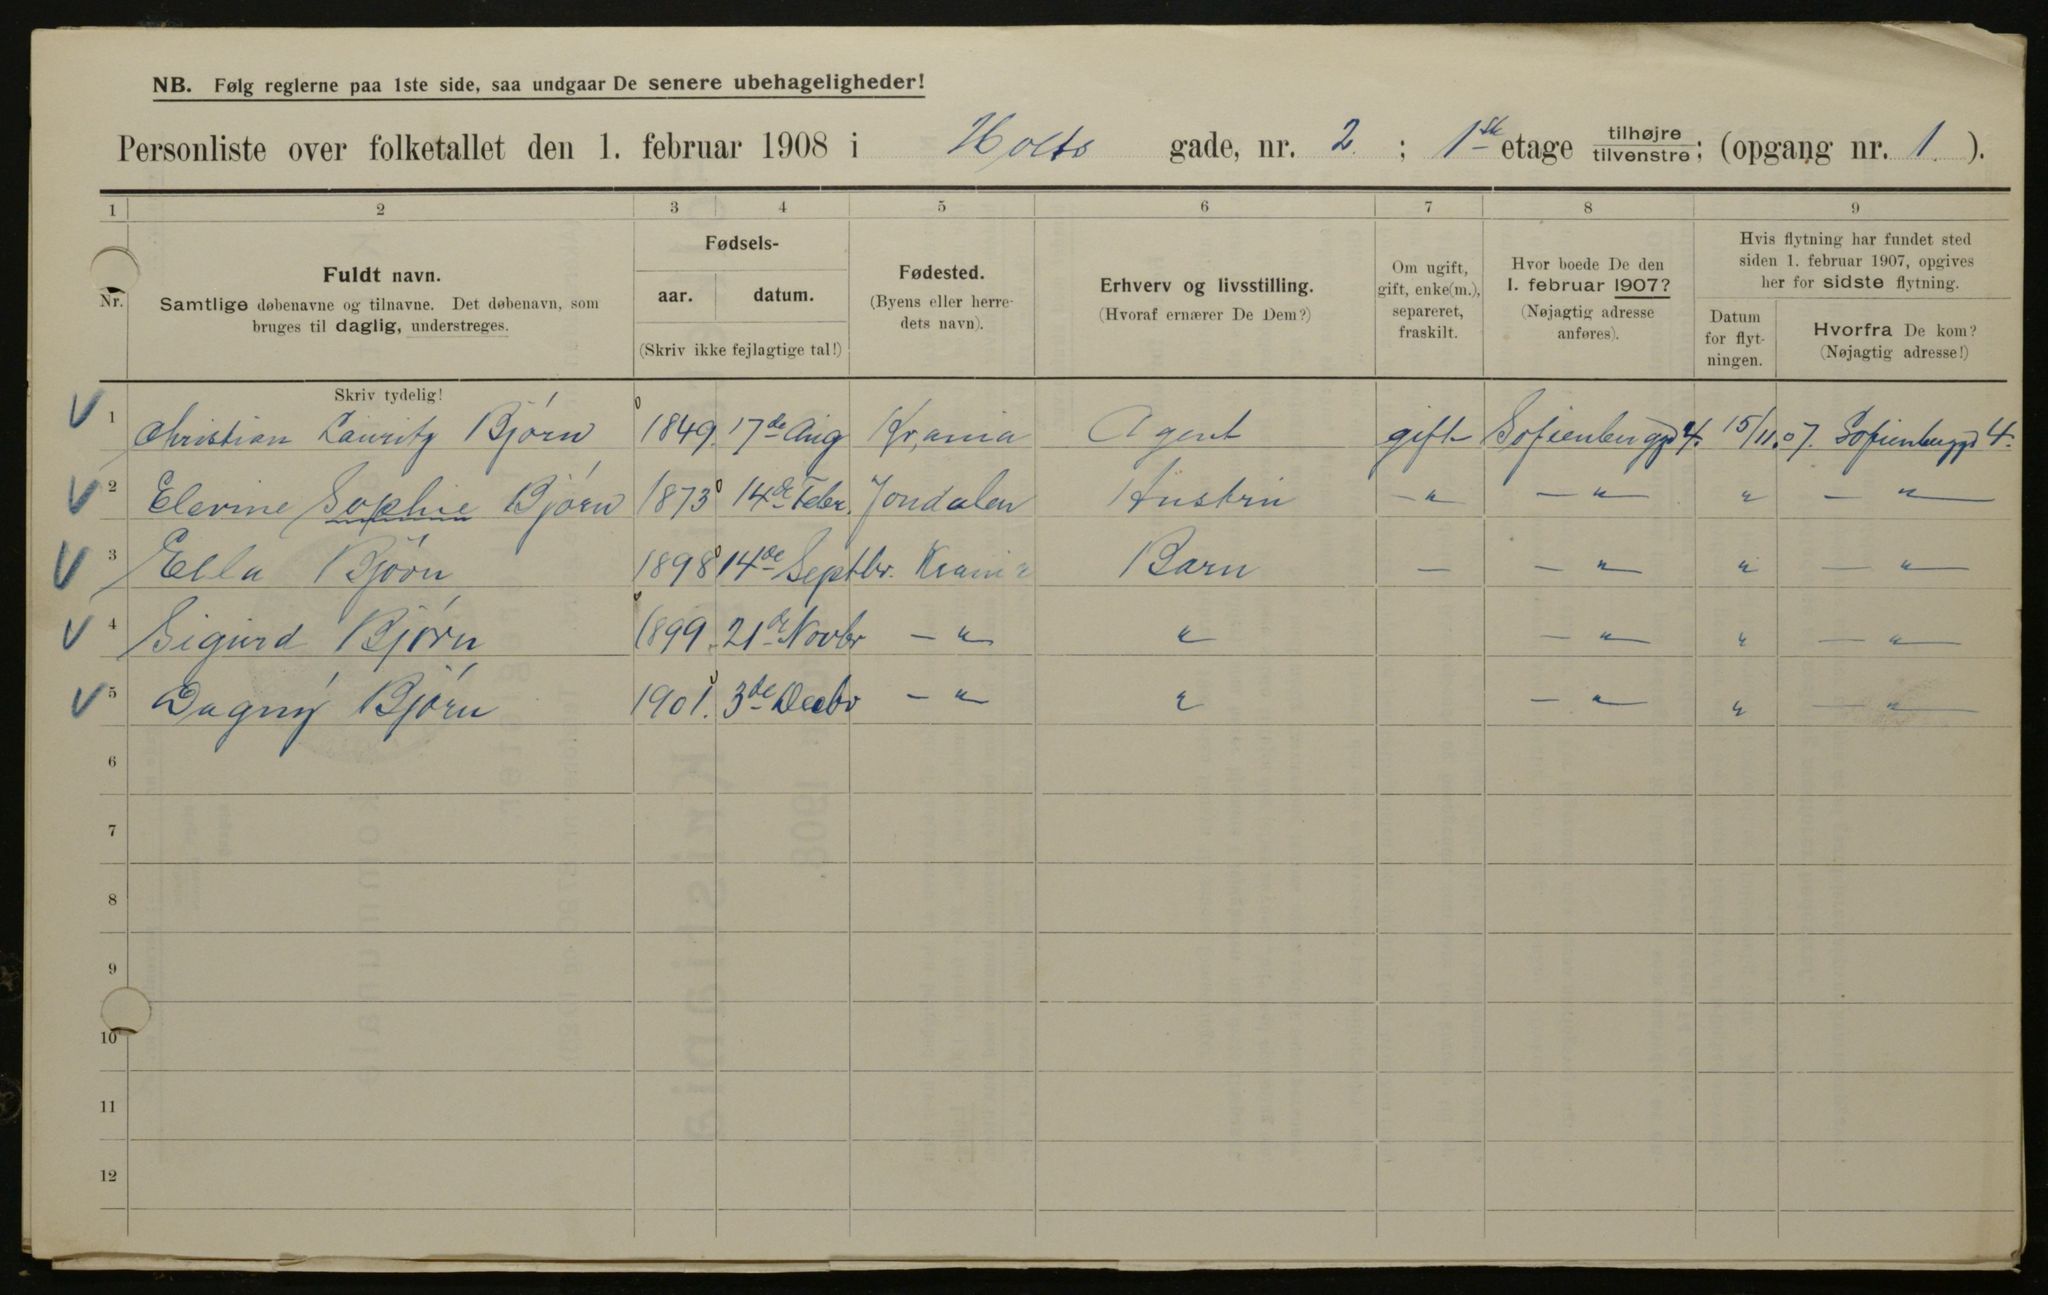 NB. Følg reglerne paa 1ste side, saa undgaar De senere ubehageligheder!
Personliste over folketallet den 1. februar 1908 i Holts gade, nr. 2. ; 1ste etage tilhøjre tilvenstre; (opgang nr. 1. ).
1 2 3 4 5 6 7 8 9
Nr.
Fuldt navn.
Samtlige døbenavne og tilnavne. Det døbenavn, som
bruges til daglig, understreges.
Skriv tydelig!
Fødsels-
aar. datum.
(Skriv ikke fejlagtige tal!)
Fødested.
(Byens eller herre-
dets navn).
Erhverv og livsstilling.
(Hvoraf ernærer De Dem?)
Om ugift,
gift, enke(m.),
separeret,
fraskilt.
Hvor boede De den
1. februar 1907?
(Nøjagtig adresse
anføres).
Hvis flytning har fundet sted
siden 1. februar 1907, opgives
her for sidste flytning.
Datum
for flyt-
ningen.
Hvorfra De kom?
(Nøjagtig adresse!)
1 Christian Lauritz Bjørn 1849. 17de Aug Kr,ania Agent gift Sofienberggd 4. 15/11.07. Sofienberggd 4.
2 Elevine Sophie Bjørn 1873 14de Febr. Jondalen Hustru -"- -"- " -"-
3 Ella Bjørn 1898 14de Septbr. Krania Barn - -"- " -"-
4 Sigurd Bjørn 1899. 21de Novbr -"- " -"- " -"-
5 Dagny Bjørn 1901. 3de Decbr -"- " -"- " -"-
6
7
8
9
10
11
12